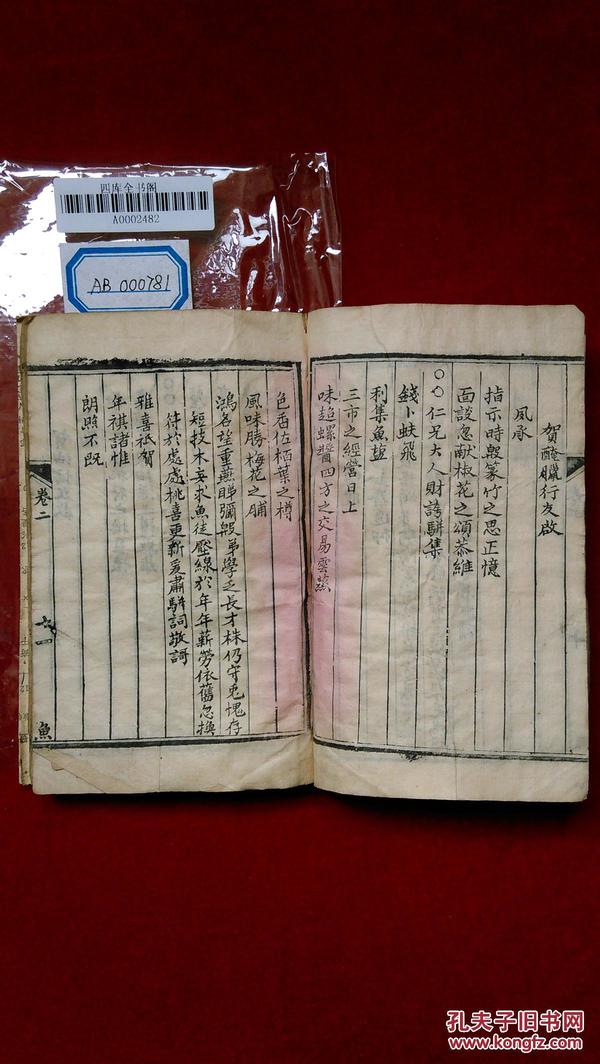 四库全书阁
A0002482
AB 000781
賀醃臘行友啟
夙承
指示時殷篆竹之思正憶
面談忽献椒花之頌恭維
○○仁兄大人財諉駢集
錢卜蚨飛
利集魚鹽
三市之經營日上
味趁螺醬四方之交易雲蒸
色香佐栢葉之樽
風味勝梅花之脯
鴻名望重燕睇彌殷弟學乏長才株仍守兎愧存
短技木妄求魚徒壓線於年年薪勞依舊忽換
符於處處桃喜更新爰肅駢詞敬訶
雅喜祇賀
年祺諸惟
朗照不既
卷二
六一
漁
孔夫子旧书网
www.kongfz.com